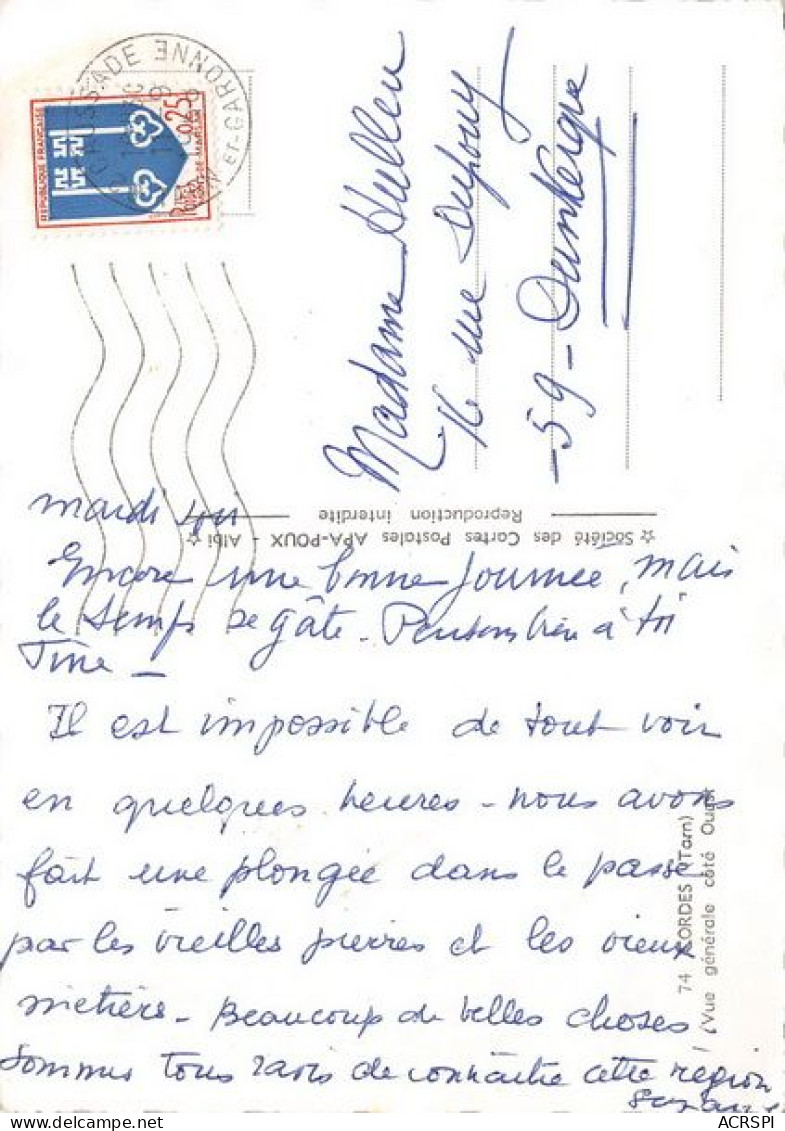 CAUSSADE
TARN-ET-GARONNE
REPUBLIQUE FRANÇAISE
0,25
MONT-DE-MARSAN
Madame Hullen
rue Dupouy
- 59 - Dunkerque
☆ Société des Cartes Postales APA-POUX - Albi ☆
Reproduction interdite
mardi
Encore une bonne journée, mais
le temps se gâte. Pensons bien à toi
Tine -
Il est impossible de tout voir
en quelques heures - nous avons
fait une plongée dans le passé
par les vieilles pierres et les vieux
métiers - Beaucoup de belles choses
Sommes tous ravis de connaître cette région
74 CORDES (Tarn)
(Vue générale côté
ACRSPI